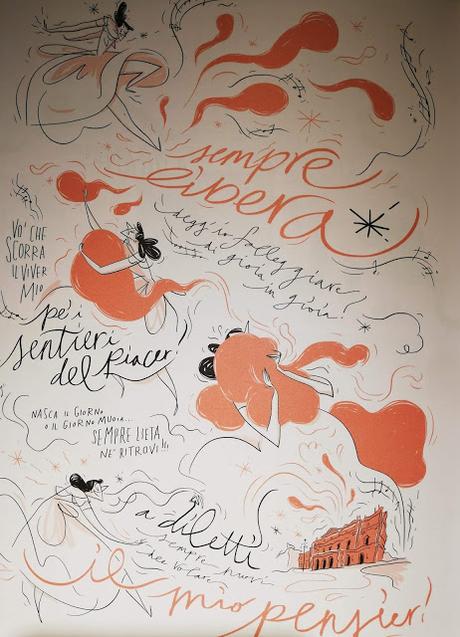 sempre
libera
degg'io folleggiare
di gioia
in gioia!
VO' CHE
SCORRA
IL VIVER
MIO
pe' i
sentieri
del Piacer!
NASCA IL GIORNO
O IL GIORNO MUOIA...
SEMPRE LIETA
NE' RITROVI!!!
a diletti
sempre nuovi
dee volare
il
mio pensier!